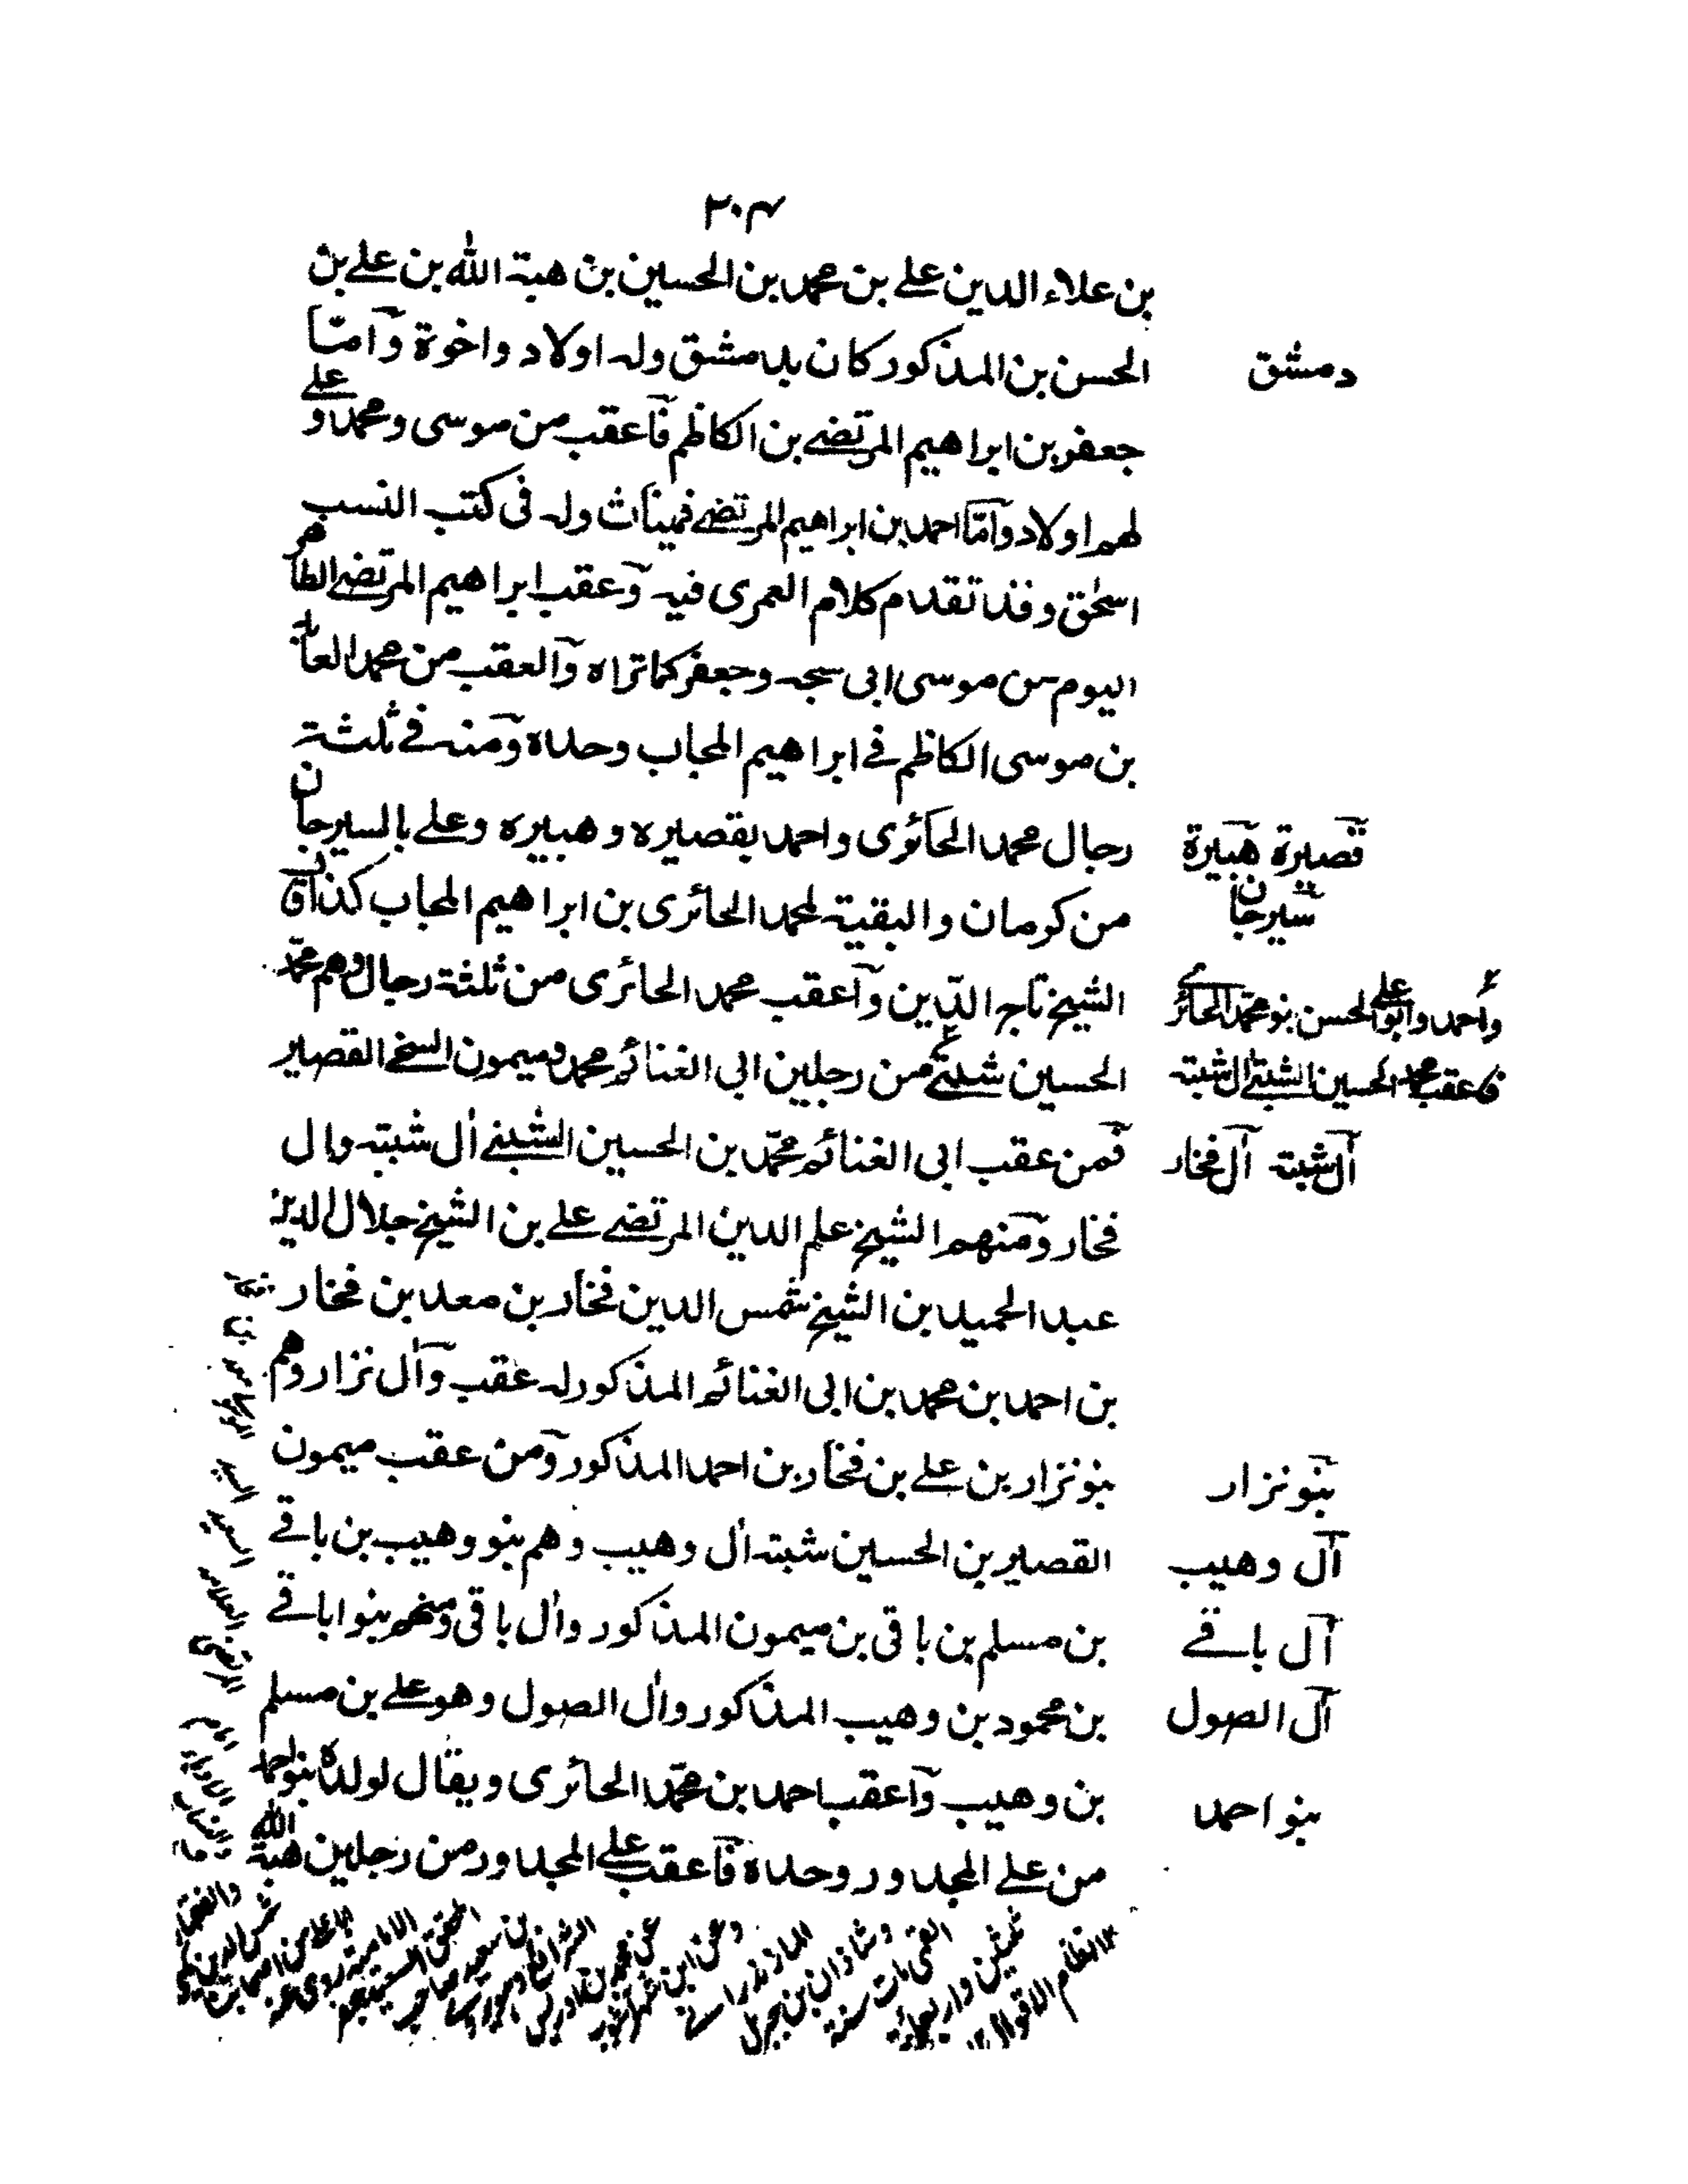 ٢٠٤
بن علاء الدين علي بن محمد بن الحسين بن هبة الله بن علي بن
الحسن بن المذكور كان بدمشق وله اولاد واخوة وآمّا
دمشق
جعفر بن ابراهيم المرتضے بن الكاظم فآعقب من موسى ومحمد وعلے
لهم اولاد وآمّا احمد بن ابراهيم المرتضے فميناث وله فى كتب النسب
اسحٰق وقد تقدم كلام العمرى فيه وعقب ابراهيم المرتضے الطاهر
اليوم من موسى ابى سبحه وجعفر كما تراه وآلعقب من محمد العابد
بن موسى الكاظم فے ابراهيم المجاب وحده ومنه فے ثلثة
رجال محمد الحائرى واحمد بقصيره وهبيره وعلے بالسيرجان
قصيرة هبيرة
سيرجان
من كرمان والبقية لمحمد الحائرى بن ابراهيم المجاب كذا ق
الشيخ تاج الدّين وآعقب محمد الحائرى من ثلثة رجال وهم محمّد
واحمد وابو علي الحسن بنو محمّد الحائرے
الحسين شيتے من رجلين ابى الغنائم محمد وميمون السخے القصير
فاعقب محمد الحسين الشيتے ال شيته
فمن عقب ابى الغنائم محمّد بن الحسين الشيتے اٰل شيته واٰل
آل شيته آل فخار
فخار ومنهم الشيخ علم الدين المرتضے علے بن الشيخ جلال الدين
عبد الحميد بن الشيخ شمس الدين فخار بن معد بن فخار
بن احمد بن محمد بن ابى الغنائم المذكور له عقب وآل نزار وهم
بنو نزار بن علے بن فخار بن احمد المذكور ومن عقب ميمون
بنو نزار
القصير بن الحسين شيته اٰل وهيب وهم بنو وهيب بن باقے
آل وهيب
بن مسلم بن باقى بن ميمون المذكور واٰل باقى ومنهم بنوا باقے
آل باقے
بن محمود بن وهيب المذكور واٰل الصول وهو علے بن مسلم
آل الصول
بن وهيب وآعقب احمد بن محمّد الحائرى ويقال لولده بنو احمد
بنو احمد
من علے المجدور وحده فآعقب علے المجدور من رجلين هبة الله
نظام الاقوال
القمى مات سنة
وشاذان بن جبرئل
وعن ابن شهراشوب
عن محمد بن ادريس